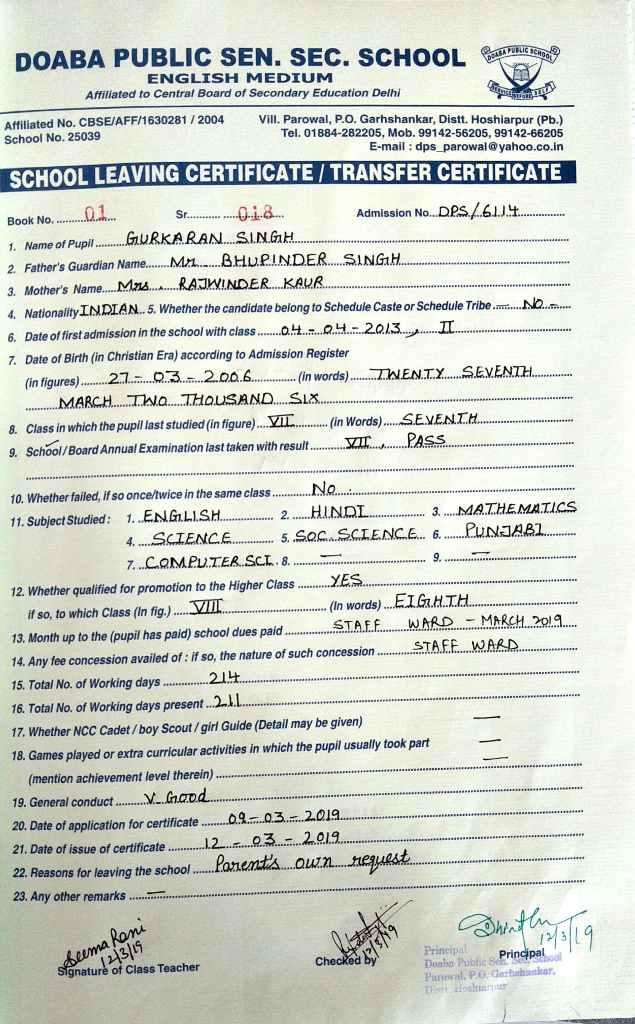 DOABA PUBLIC SEN. SEC. SCHOOL
ENGLISH MEDIUM
Affiliated to Central Board of Secondary Education Delhi
DOABA PUBLIC SCHOOL
SERVICE BEFORE SELF
Affiliated No. CBSE/AFF/1630281 / 2004 Vill. Parowal, P.O. Garhshankar, Distt. Hoshiarpur (Pb.)
School No. 25039 Tel. 01884-282205, Mob. 99142-56205, 99142-66205
E-mail : dps_parowal@yahoo.co.in
SCHOOL LEAVING CERTIFICATE / TRANSFER CERTIFICATE
Book No. 01 Sr. 018 Admission No. DPS/6114
1. Name of Pupil GURKARAN SINGH
2. Father's Guardian Name Mr. BHUPINDER SINGH
3. Mother's Name Mrs. RAJWINDER KAUR
4. Nationality INDIAN 5. Whether the candidate belong to Schedule Caste or Schedule Tribe - NO -
6. Date of first admission in the school with class 04-04-2013, II
7. Date of Birth (in Christian Era) according to Admission Register
(in figures) 27-03-2006 (in words) TWENTY SEVENTH
MARCH TWO THOUSAND SIX
8. Class in which the pupil last studied (in figure) VII (in Words) SEVENTH
9. School / Board Annual Examination last taken with result VII, PASS
10. Whether failed, if so once/twice in the same class No.
11. Subject Studied : 1. ENGLISH 2. HINDI 3. MATHEMATICS
4. SCIENCE 5. SOC. SCIENCE 6. PUNJABI
7. COMPUTER SCI. 8. — 9. —
12. Whether qualified for promotion to the Higher Class YES
if so, to which Class (In fig.) VIII (In words) EIGHTH
13. Month up to the (pupil has paid) school dues paid STAFF WARD - MARCH 2019
14. Any fee concession availed of : if so, the nature of such concession STAFF WARD
15. Total No. of Working days 214
16. Total No. of Working days present 211
17. Whether NCC Cadet / boy Scout / girl Guide (Detail may be given) —
18. Games played or extra curricular activities in which the pupil usually took part —
(mention achievement level therein) —
19. General conduct V. Good
20. Date of application for certificate 09-03-2019
21. Date of issue of certificate 12-03-2019
22. Reasons for leaving the school Parent's own request
23. Any other remarks —
Seema Rani
12/3/19
Signature of Class Teacher
12/3/19
Checked by
12/3/19
Principal
Principal
Doaba Public Sen. Sec. School
Parowal, P.O. Garhshankar,
Distt. Hoshiarpur